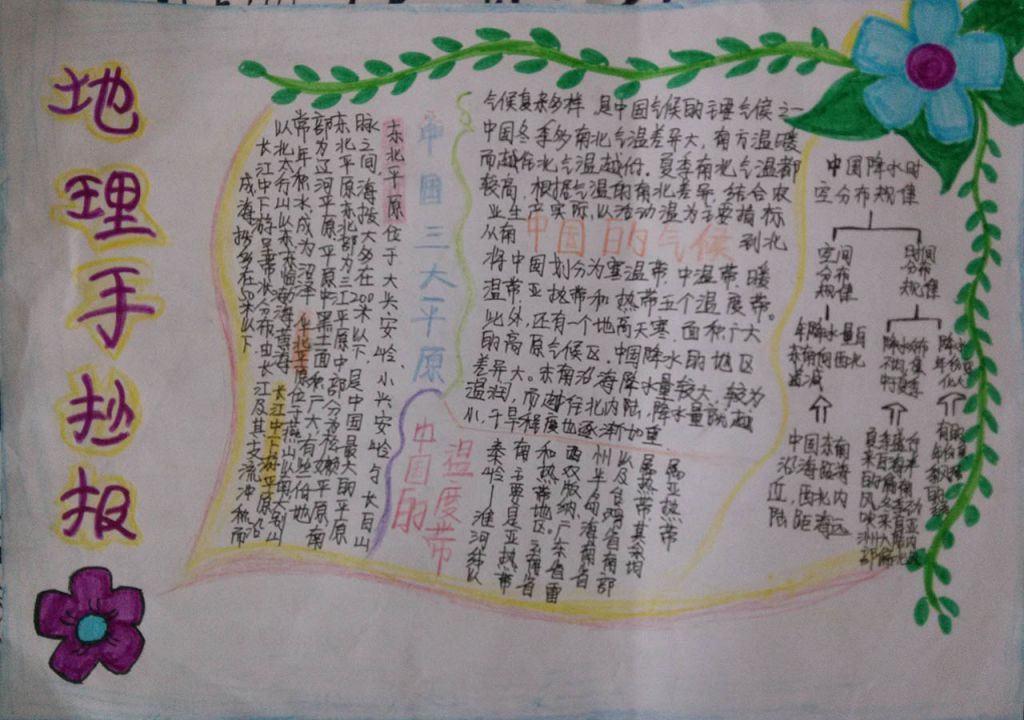 地理手抄报
中国三大平原
东北平原位于大兴安岭、小兴安岭与长白山
脉之间,海拔大多在200米以下,是中国最大的平原
东北平原东北部为三江平原,中部分为松嫩平原,南
部为辽河平原,平原中黑土面积广大,有些份地
常年积水,成为沼泽,华北平原位于燕山以南大别山
以北太行山以东东临渤海黄海 长江中下游平原沿
长江中下游呈带状分布由长江及其支流冲积而
成,海拔多在50米以下
中国的气候
气候复杂多样 是中国气候的主要气候之一
中国冬季多南北气温差异大,南方温暖
而越往北气温越低。夏季南北气温都
较高,根据气温的南北差异,结合农
业生产实际,以活动温为主要指标
从南 到北
将中国划分为寒温带、中温带、暖
温带、亚热带和热带五个温度带。
此外,还有一个地高天寒,面积广大
的高原气候区。中国降水的地区
差异大。东南沿海降水量较大,较为
温润,而越往北内陆,降水量就越
小,干旱程度也逐渐加重
中国的温度带
秦岭—淮河绊队
南主要是亚热带
和热带地区。云南省
西双版纳广东省雷
州半岛海南省
以及台湾省南部
属热带,其余均
属亚热带
中国降水时
空分布规律
空间
分布
规律
时间
分布
规律
年降水量自
东南向西北
递减
中国东南
沿海临海
近,西北内
陆,距海远